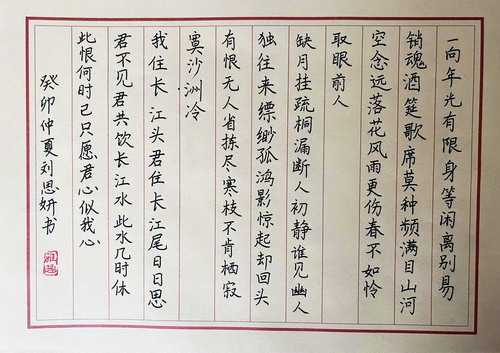 一向年光有限身等闲离别易
销魂酒筵歌席莫种频满目山河
空念远落花风雨更伤春不如怜
取眼前人
缺月挂疏桐漏断人初静谁见幽人
独往来缥缈孤鸿影惊起却回头
有恨无人省拣尽寒枝不肯栖寂
寞沙洲冷
我住长江头君住长江尾日日思
君不见君共饮长江水此水几时休
此恨何时已只愿君心似我心
癸卯仲夏刘思妍书